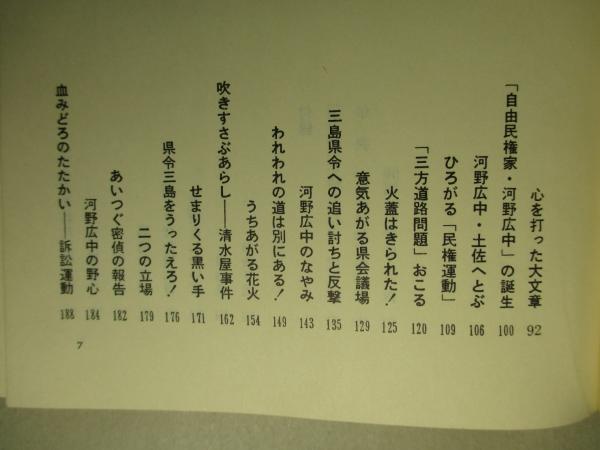 心を打った大文章 92
「自由民権家・河野広中」の誕生 100
河野広中・土佐へとぶ 106
ひろがる「民権運動」 109
「三方道路問題」おこる 120
火蓋はきられた！ 125
意気あがる県会議場 129
三島県令への追い討ちと反撃 135
河野広中のなやみ 143
われわれの道は別にある！ 149
うちあがる花火 154
吹きすさぶあらし――清水屋事件 162
せまりくる黒い手 171
県令三島をうったえろ！ 176
二つの立場 179
あいつぐ密偵の報告 182
河野広中の野心 184
血みどろのたたかい――訴訟運動 188
7